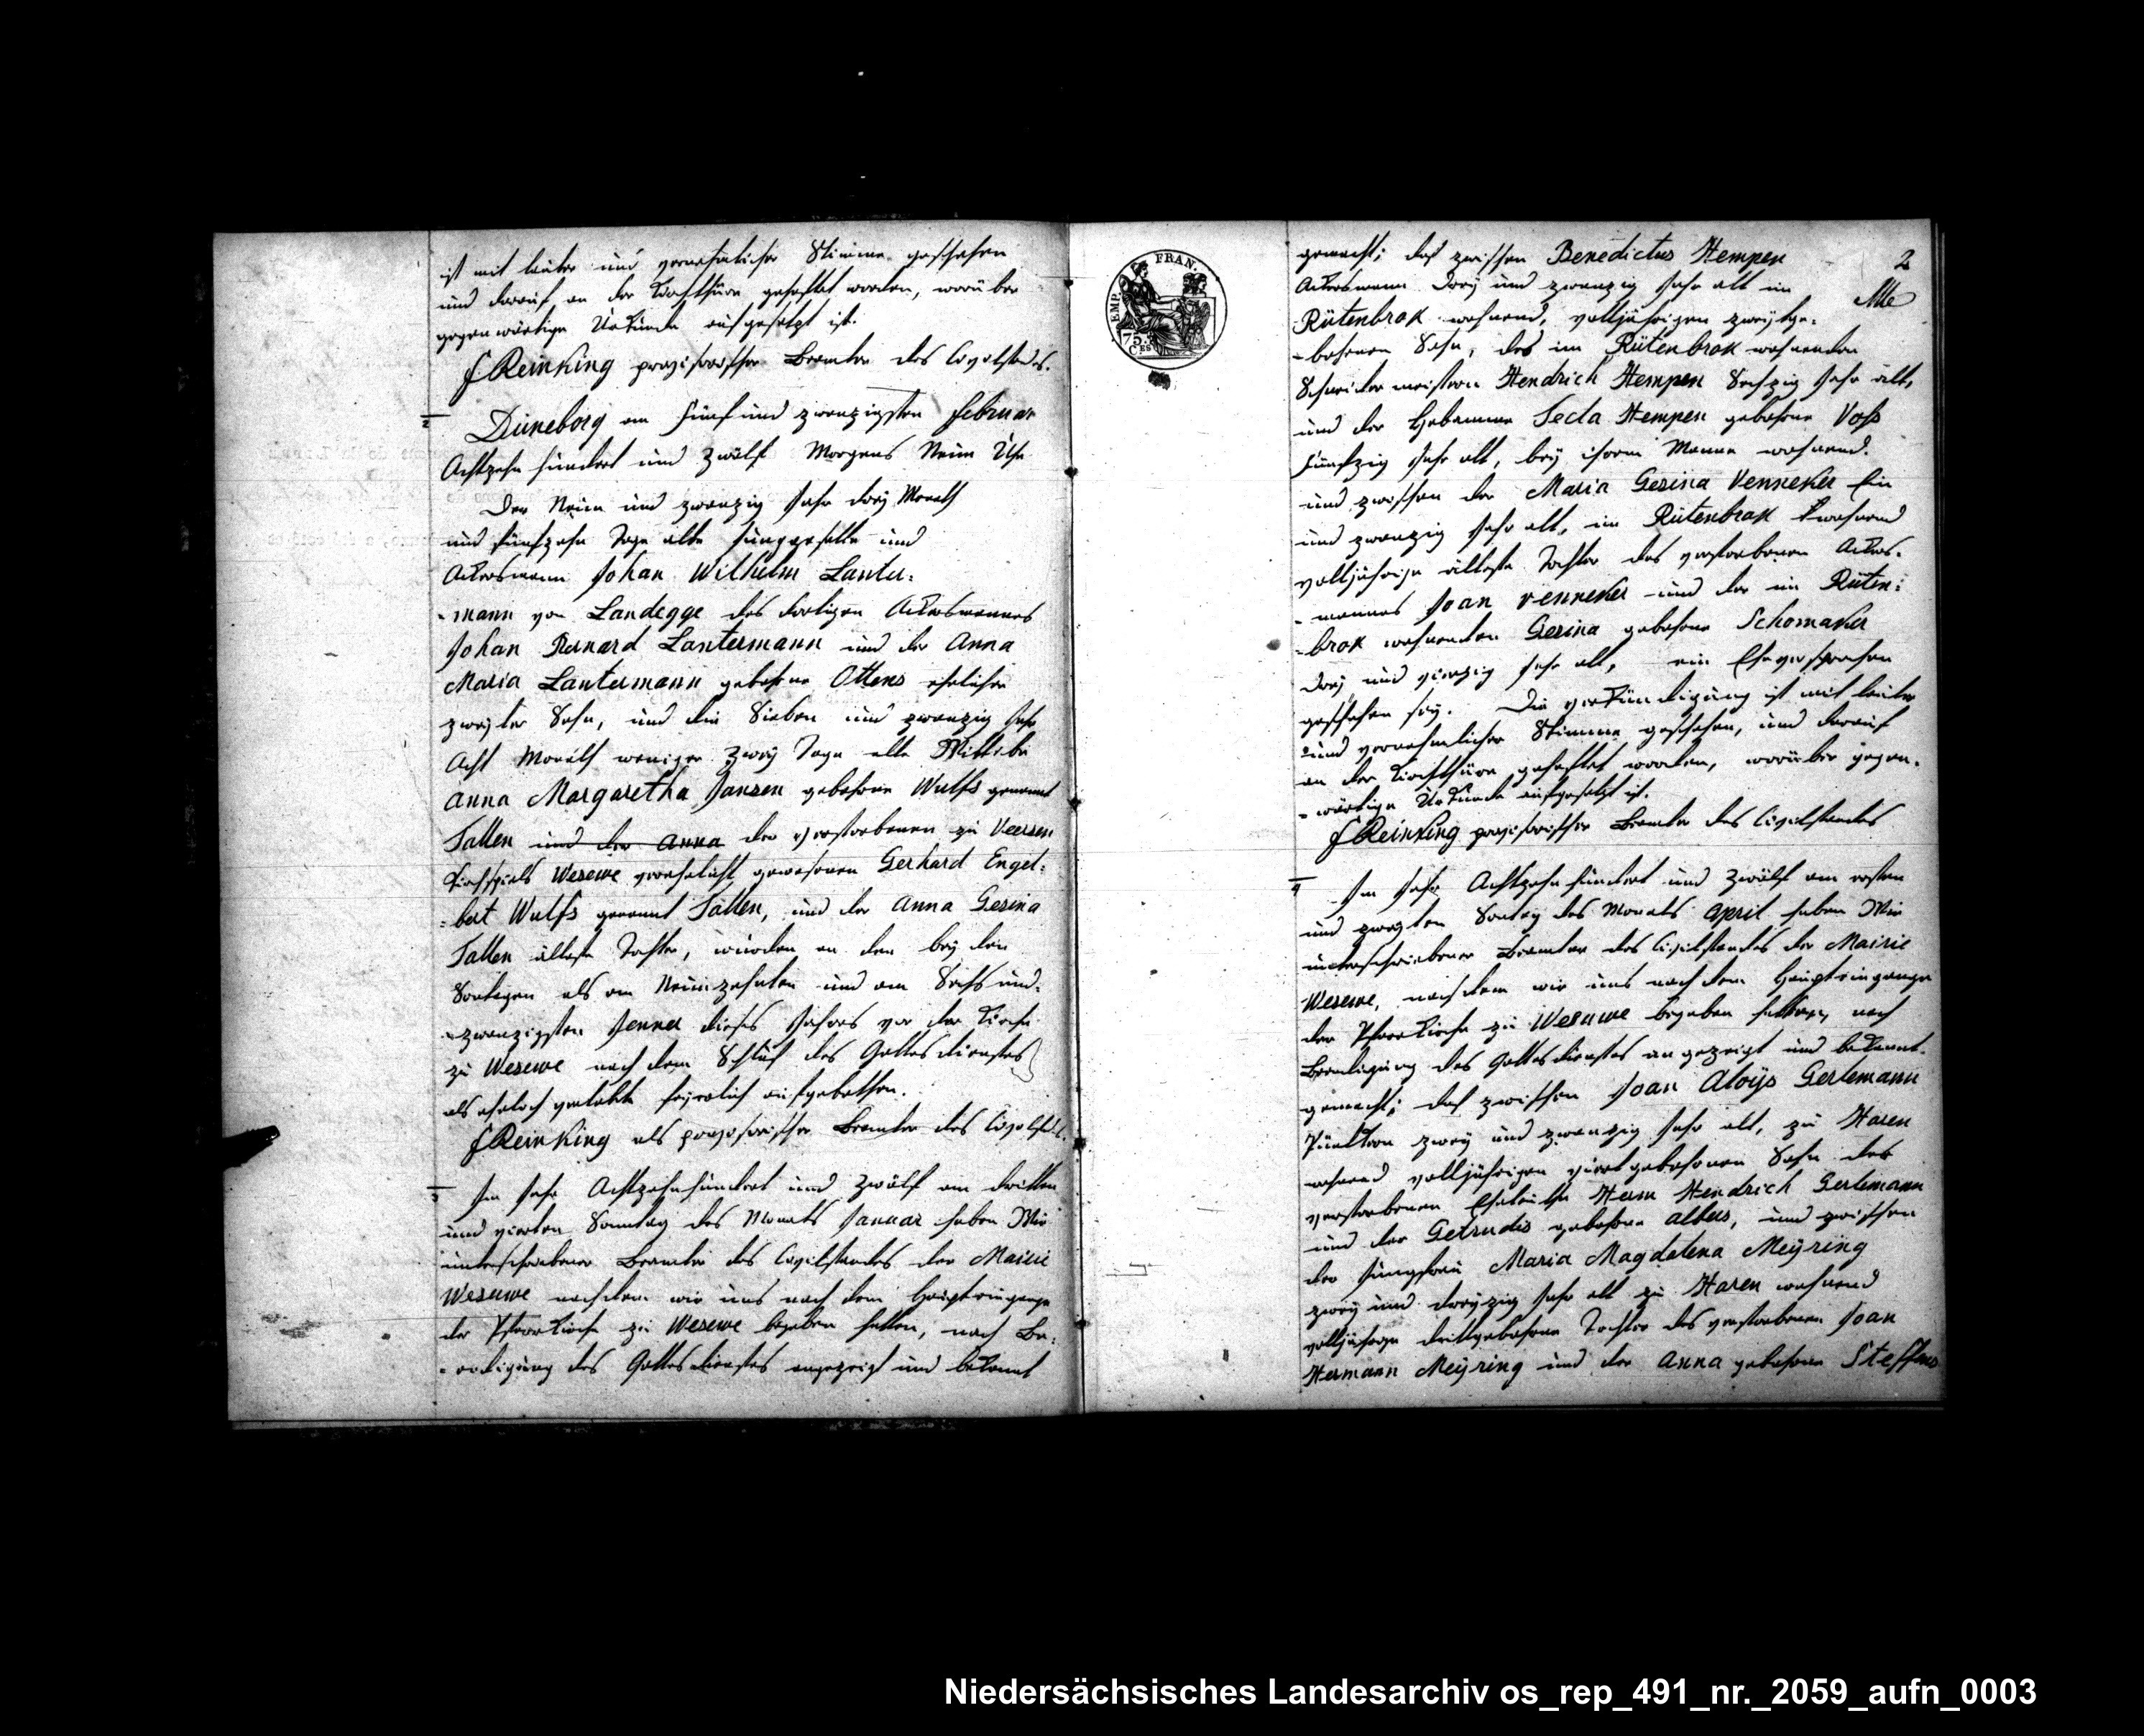 ist mit lauter und vernehmlicher Stimme geschehen
und darauf an der Kirchthüre geheftet worden, worüber
gegenwärtige Urkunde aufgesetzt ist.
Reinking provisorischer Beamter des Civilstands.
2
Düneborg am fünf und zwanzigsten Februar
Achtzehn hundert und zwölf Morgens Neun Uhr
Der Neun und zwanzig Jahr drey Monath
und fünfzehn Tage alte Junggeselle und
Ackersmann Johan Wilhelm Lanter-
-mann von Landegge des dortigen Ackersmannes
Johan Bernard Lantermann und der Anna
Maria Lantermann gebohrne Ottens ehelicher
zweyter Sohn, und die Sieben und zwanzig Jahr
Acht Monath weniger zwey Tage alte Wittibe
Anna Margaretha Jansen gebohrne Wulfs genannt
Tallen und der Anna der verstorbenen zu Veersen
Kirchspiels Wesuwe verehelicht gewesenen Gerhard Engel:
:bert Wulfs genannt Tallen, und der Anna Gesina
Tallen älteste Tochter, wurden an den bey den
Sontagen als am Neunzehnten und am Sechs und:
-zwanzigsten Jenner dieses Jahres vor der Kirche
zu Wesuwe nach dem Schluß des Gottesdienstes
als ehelich verlobte feyerlich aufgebothen.
Reinking als provisorischer Beamter des Civilstds.
3
Im Jahr Achtzehnhundert und zwölf am dritten
und vierten Sonntag des Monats Januar haben Wir
unterschriebener Beamter des Civilstandes der Mairie
Wesuwe nachdem wir uns nach dem Haupteingange
der Pfarrkirche zu Wesuwe begeben hatten, nach Be:
-endigung des Gottesdienstes angezeigt und bekannt
EMP. FRAN.
75.
C.ES
2
gemacht; daß zwischen Benedictus Hempen
Ackersmann drey und zwanzig Jahr alt im
Rütenbrok wohnend, volljährigen zweytge-
-bohrnen Sohn, des im Rütenbrok wohnenden
Schneidermeistern Hendrich Hempen Sechzig Jahr alt,
und der Hebamme Tecla Hempen gebohrne Voß
fünfzig Jahr alt, bey ihrem Manne wohnend.
und zwischen der Maria Gesina Venneker Ein
und zwanzig Jahr alt, im Rütenbrok wohnend
volljährige älteste Tochter des verstorbenen Ackers-
-mannes Joan Venneker und der im Rüten:
-brok wohnenden Gesina gebohrne Schomaker
drey und vierzig Jahr alt, ein Eheversprechen
geschehen sey. Die Verkündigung ist mit lauter
und vernehmlicher Stimme geschehen, und darauf
an der Kirchthüre geheftet worden, worüber gegen-
-wärtige Urkunde aufgesetzt ist.
Reinking provisorischer Beamter des Civilstandes
4
Im Jahr Achtzehnhundert und zwölf am ersten
und zweyten Sontag des Monats April haben Wir
unterschriebener Beamter des Civilstandes der Mairie
Wesuwe, nachdem wir uns nach dem Haupteingange
der Pfarrkirche zu Wesuwe begeben hatten, nach
Beendigung des Gottesdienstes angezeigt und bekannt-
gemacht; daß zwischen Joan Aloys Gerlemann
zwey und zwanzig Jahr alt, zu Haren
wohnend volljährigen viertgebohrnen Sohn des
verstorbenen Eheleuthe Herm Hendrich Gerlemann
und der Getrudis gebohrne Albers, und zwischen
der Jungfrau Maria Magdalena Meyring
zwey und dreyzig Jahr alt zu Haren wohnend
volljährige drittgebohrne Tochter des verstorbenen Joan
Hermann Meyring und der Anna gebohrne Steffens
Niedersächsisches Landesarchiv os_rep_491_nr._2059_aufn_0003